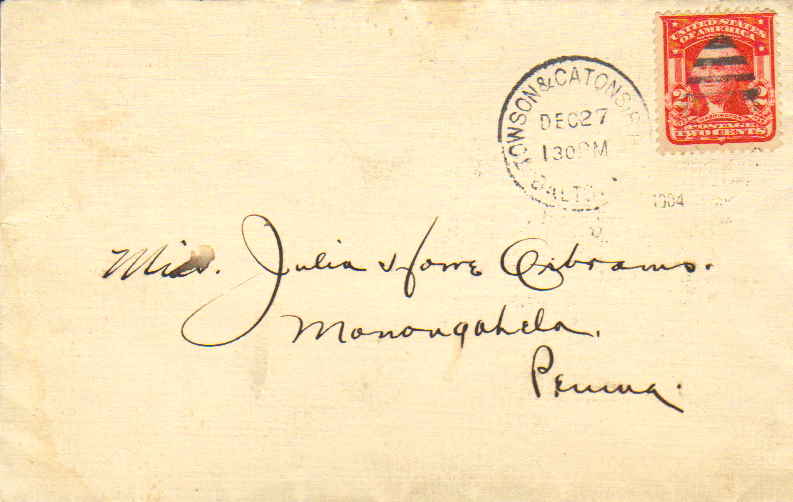 UNITED STATES
OF AMERICA
2 2
POSTAGE
TWO CENTS
TOWSON & CATONS
DEC 27
1 30 PM
BALTO
1904
Miss. Julia Howe Abrams.
Monongahela.
Penna.